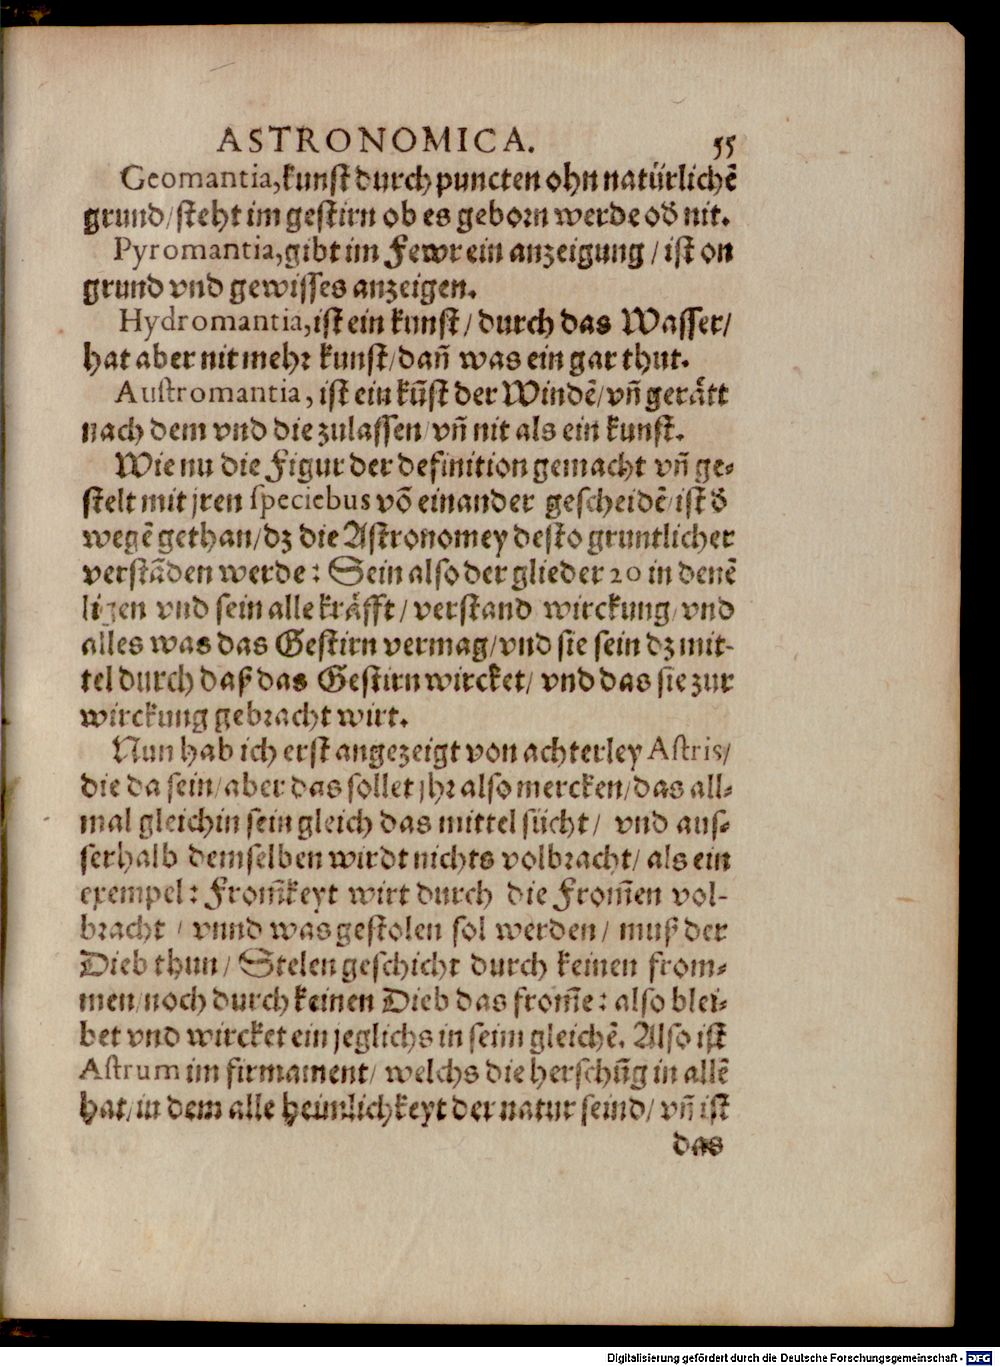 ASTRONOMICA. 55
Geomantia, kunst durch puncten ohn natürlichẽ
grund/ steht im gestirn ob es geborn werde od̃ nit.
Pyromantia, gibt im Fewr ein anzeigung / ist on
grund vnd gewisses anzeigen.
Hydromantia, ist ein kunst/ durch das Wasser/
hat aber nit mehr kunst/ dañ was ein gar thut.
Austromantia, ist ein kũst der Windẽ/ vñ geraͤtt
nach dem vnd die zulassen/ vñ nit als ein kunst.
Wie nu die Figur der definition gemacht vñ ge⸗
stelt mit jren speciebus võ einander gescheidẽ/ ist d̃
wegẽ gethan/ dz die Astronomey desto gruntlicher
verstãden werde: Sein also der glieder 20 in denẽ
ligen vnd sein alle kraͤfft/ verstand wirckung/ vnd
alles was das Gestirn vermag/ vnd sie sein dz mit-
tel durch daß das Gestirn wircket/ vnd das sie zur
wirckung gebracht wirt.
Nun hab ich erst angezeigt von achterley Astris/
die da sein/ aber das sollet jhr also mercken/ das all⸗
mal gleich in sein gleich das mittel sücht/ vnd aus⸗
serhalb demselben wirdt nichts volbracht/ als ein
exempel: From̃keyt wirt durch die From̃en vol-
bracht / vnnd was gestolen sol werden/ muß der
Dieb thun/ Stelen geschicht durch keinen from⸗
men/ noch durch keinen Dieb das from̃e: also blei⸗
bet vnd wircket ein jeglichs in seim gleichẽ. Also ist
Astrum im firmament/ welchs die herschũg in allẽ
hat/ in dem alle heimlichkeyt der natur seind/ vñ ist
das
Digitalisierung gefördert durch die Deutsche Forschungsgemeinschaft - DFG